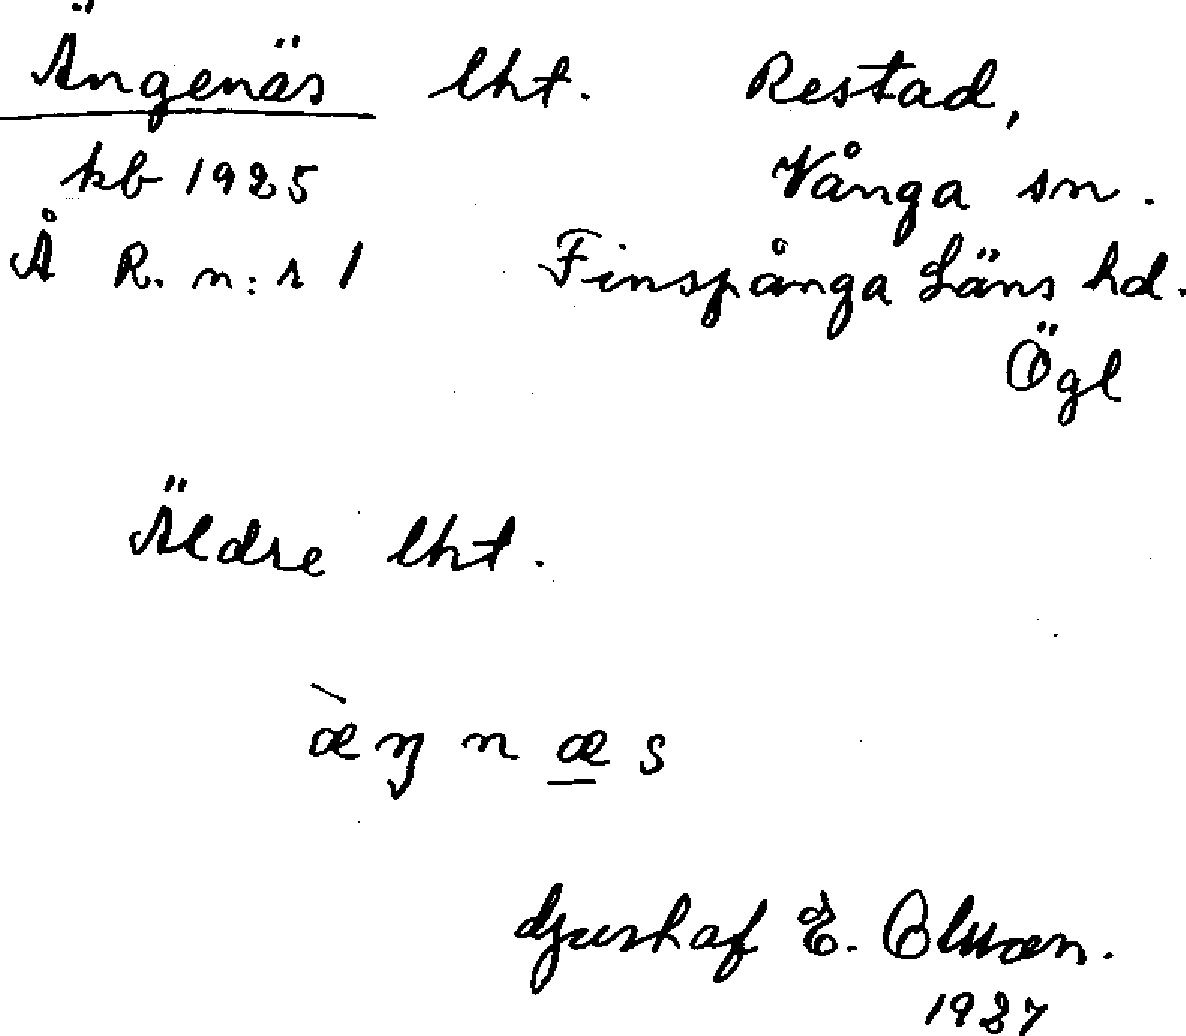 Ängenäs lht. Restad,
kb 1925 Vånga sn.
Å R. n:r 1 Finspånga Läns hd.
Ögl
Äldre lht.
æ̀ŋnæs
Gustaf E. Olsson.
1927